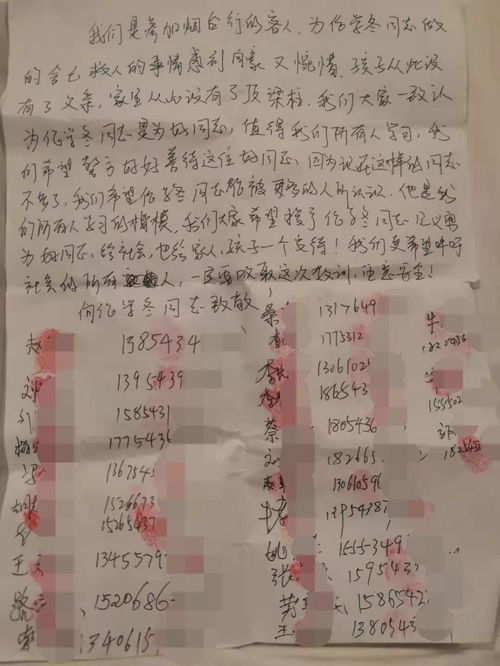 我们是参加烟台行的客人，为伦学冬同志做
的舍己救人的事情感到自豪又惋惜，孩子从此没
有了父亲，家里从此没有了顶梁柱。我们大家一致认
为伦学冬同志是为好同志，值得我们所有人学习，我
们希望警方好好善待这位好同志，因为现在这样的同志
不多了，我们希望伦学冬同志能被更多的人所认识。他是我
们所有人学习的楷模，我们大家希望授予伦学冬同志见义勇
为好同志，给社会，也给家人、孩子一个交待！我们更希望呼吁
社会的所有人，一定要吸取这次教训，注意安全！
向伦学冬同志致敬
赵 1385434
刘 1395439
1585431
1775436
1367543
1526673
15265437
王 1345579
1520686
1340615
桑 1317649
1775312
李 1306102
186543
蔡 1805436
刘 182665
13061059
13954387
姚 1555349
张 159543
1586542
王 1380543
牛
155502